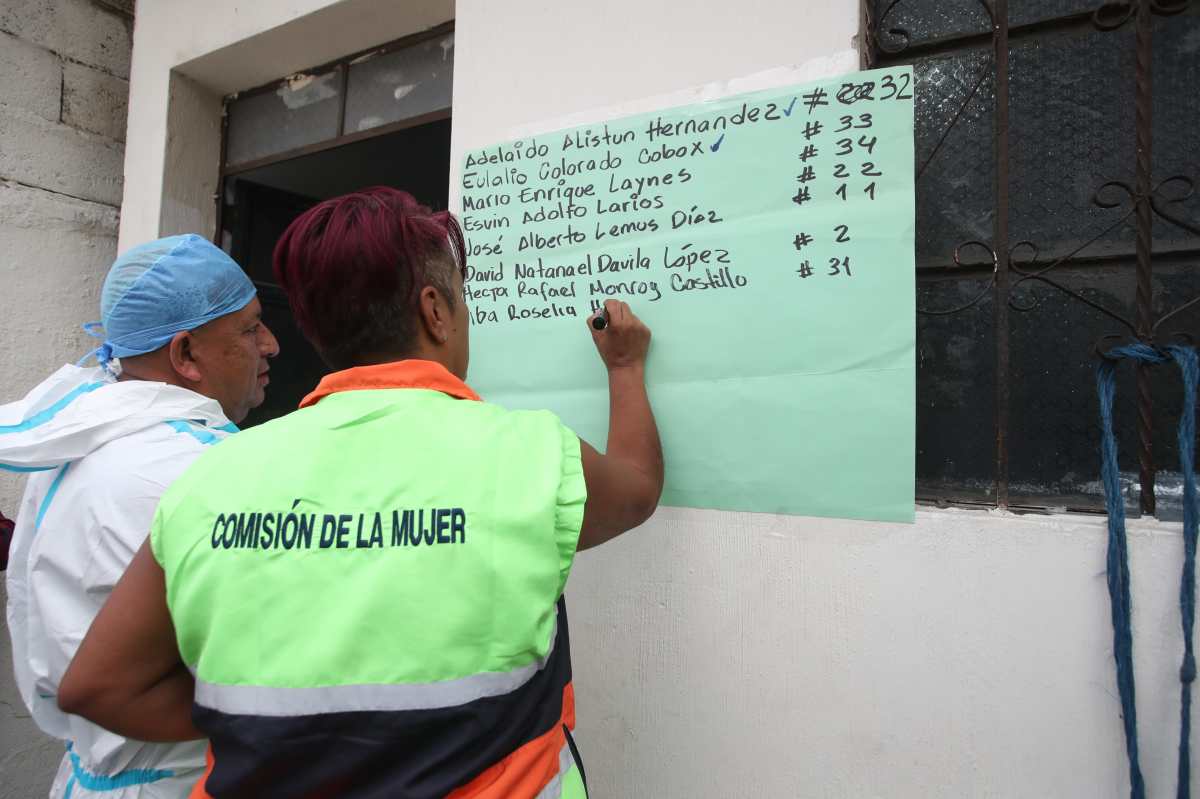 Adelaido Alistun Hernandez ✓ # 32
Eulalio Colorado Cobox ✓ # 33
Mario Enrique Laynes # 34
Esvin Adolfo Larios # 22
José Alberto Lemus Díaz # 11
David Natanael Davila López # 2
Hector Rafael Monroy Castillo # 31
Roselia
COMISIÓN DE LA MUJER